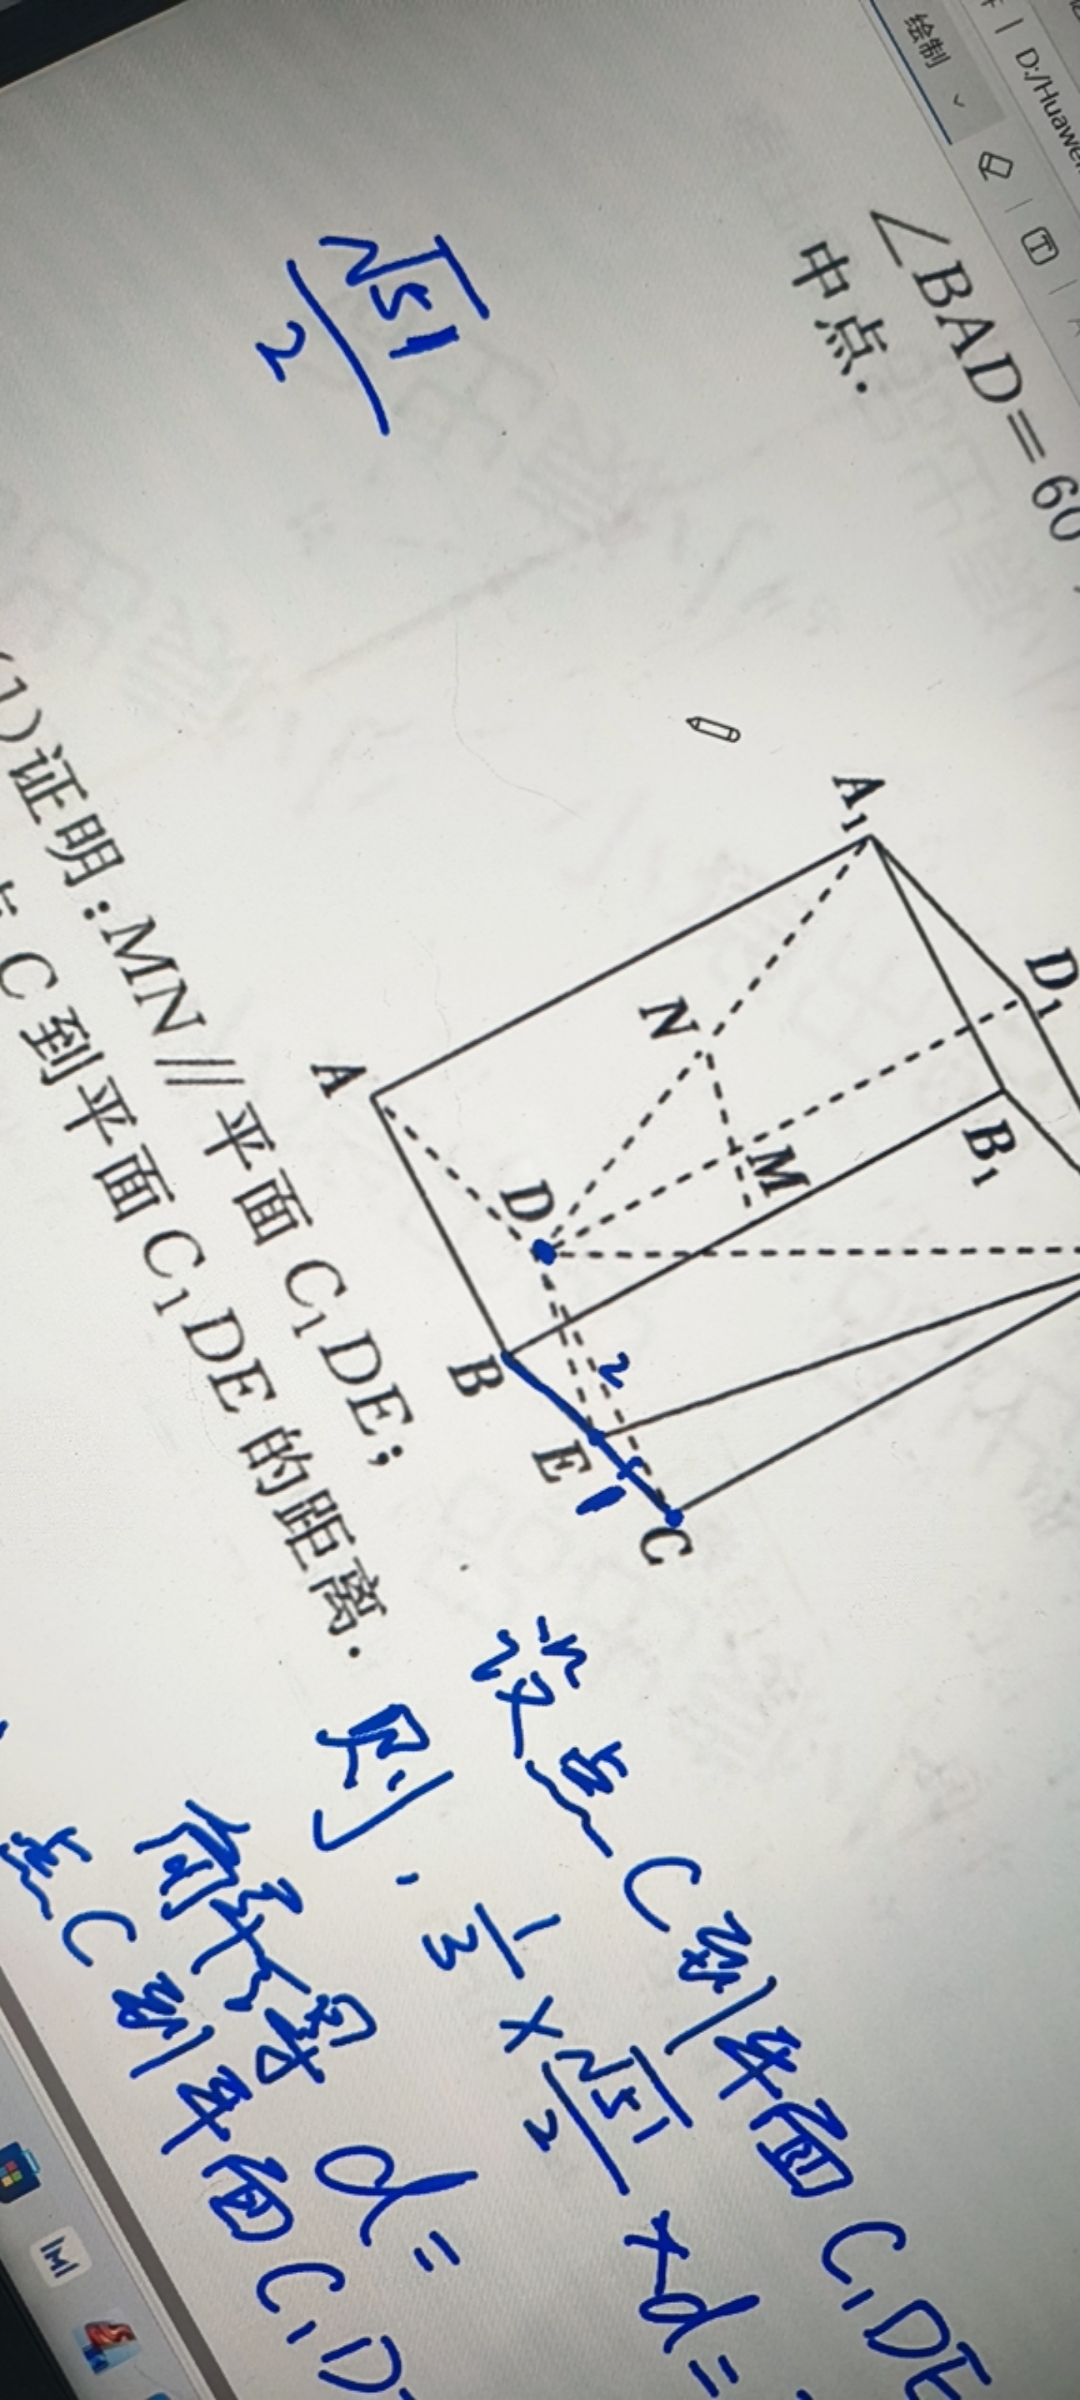 绘制
D:/Huawei
∠BAD=60
中点.
√51/2
A₁
D₁
B₁
N
M
A
D
B
E
C
2
1
(1)证明:MN∥平面C₁DE;
点C到平面C₁DE的距离.
设点C到平面C₁DE
则. 1/3×√51/2×d=
解得 d=
点C到平面C₁D